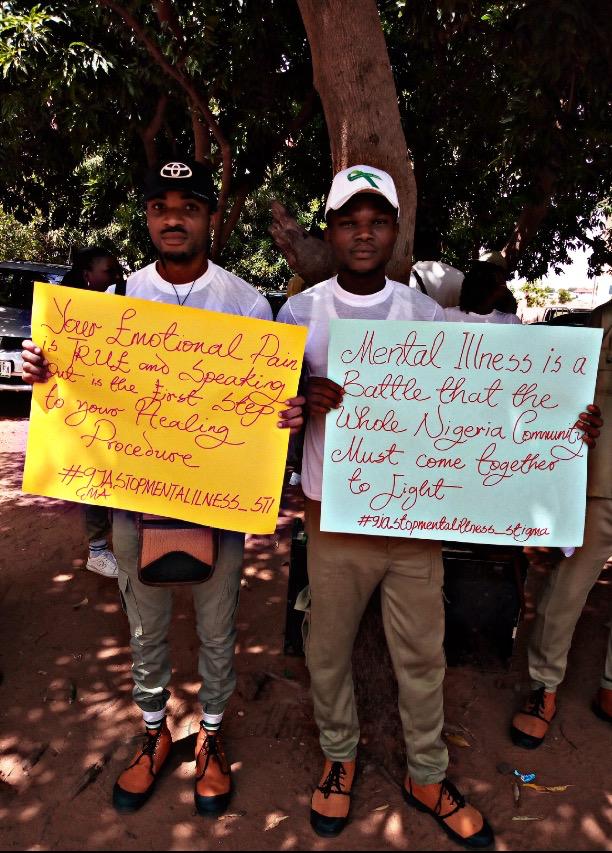 Your Emotional Pain
is TRUE and Speaking
out is the First Step
to your Healing
Procedure
#9JASTOPMENTALILNESS_STI
GMA
Mental Illness is a
Battle that the
Whole Nigeria Community
Must come together
to Fight
#9jastopmentalillness_stigma